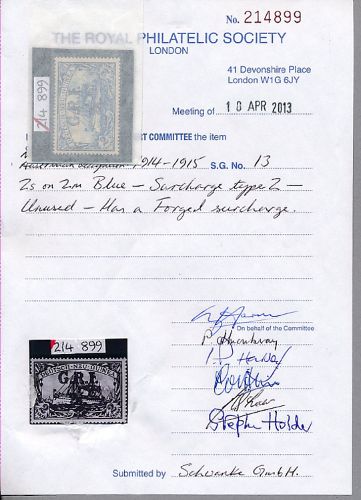 No. 214899
THE ROYAL PHILATELIC SOCIETY
LONDON
41 Devonshire Place
London W1G 6JY
214 899
Meeting of 18 APR 2013
COMMITTEE the item
1914-1915 S.G. No. 13
2s on 2m Blue - Surcharge type 2 -
Unused - Has a Forged surcharge.
On behalf of the Committee
214 899
G.R.I.
Stephen Holder
Submitted by Schwanke GmbH.